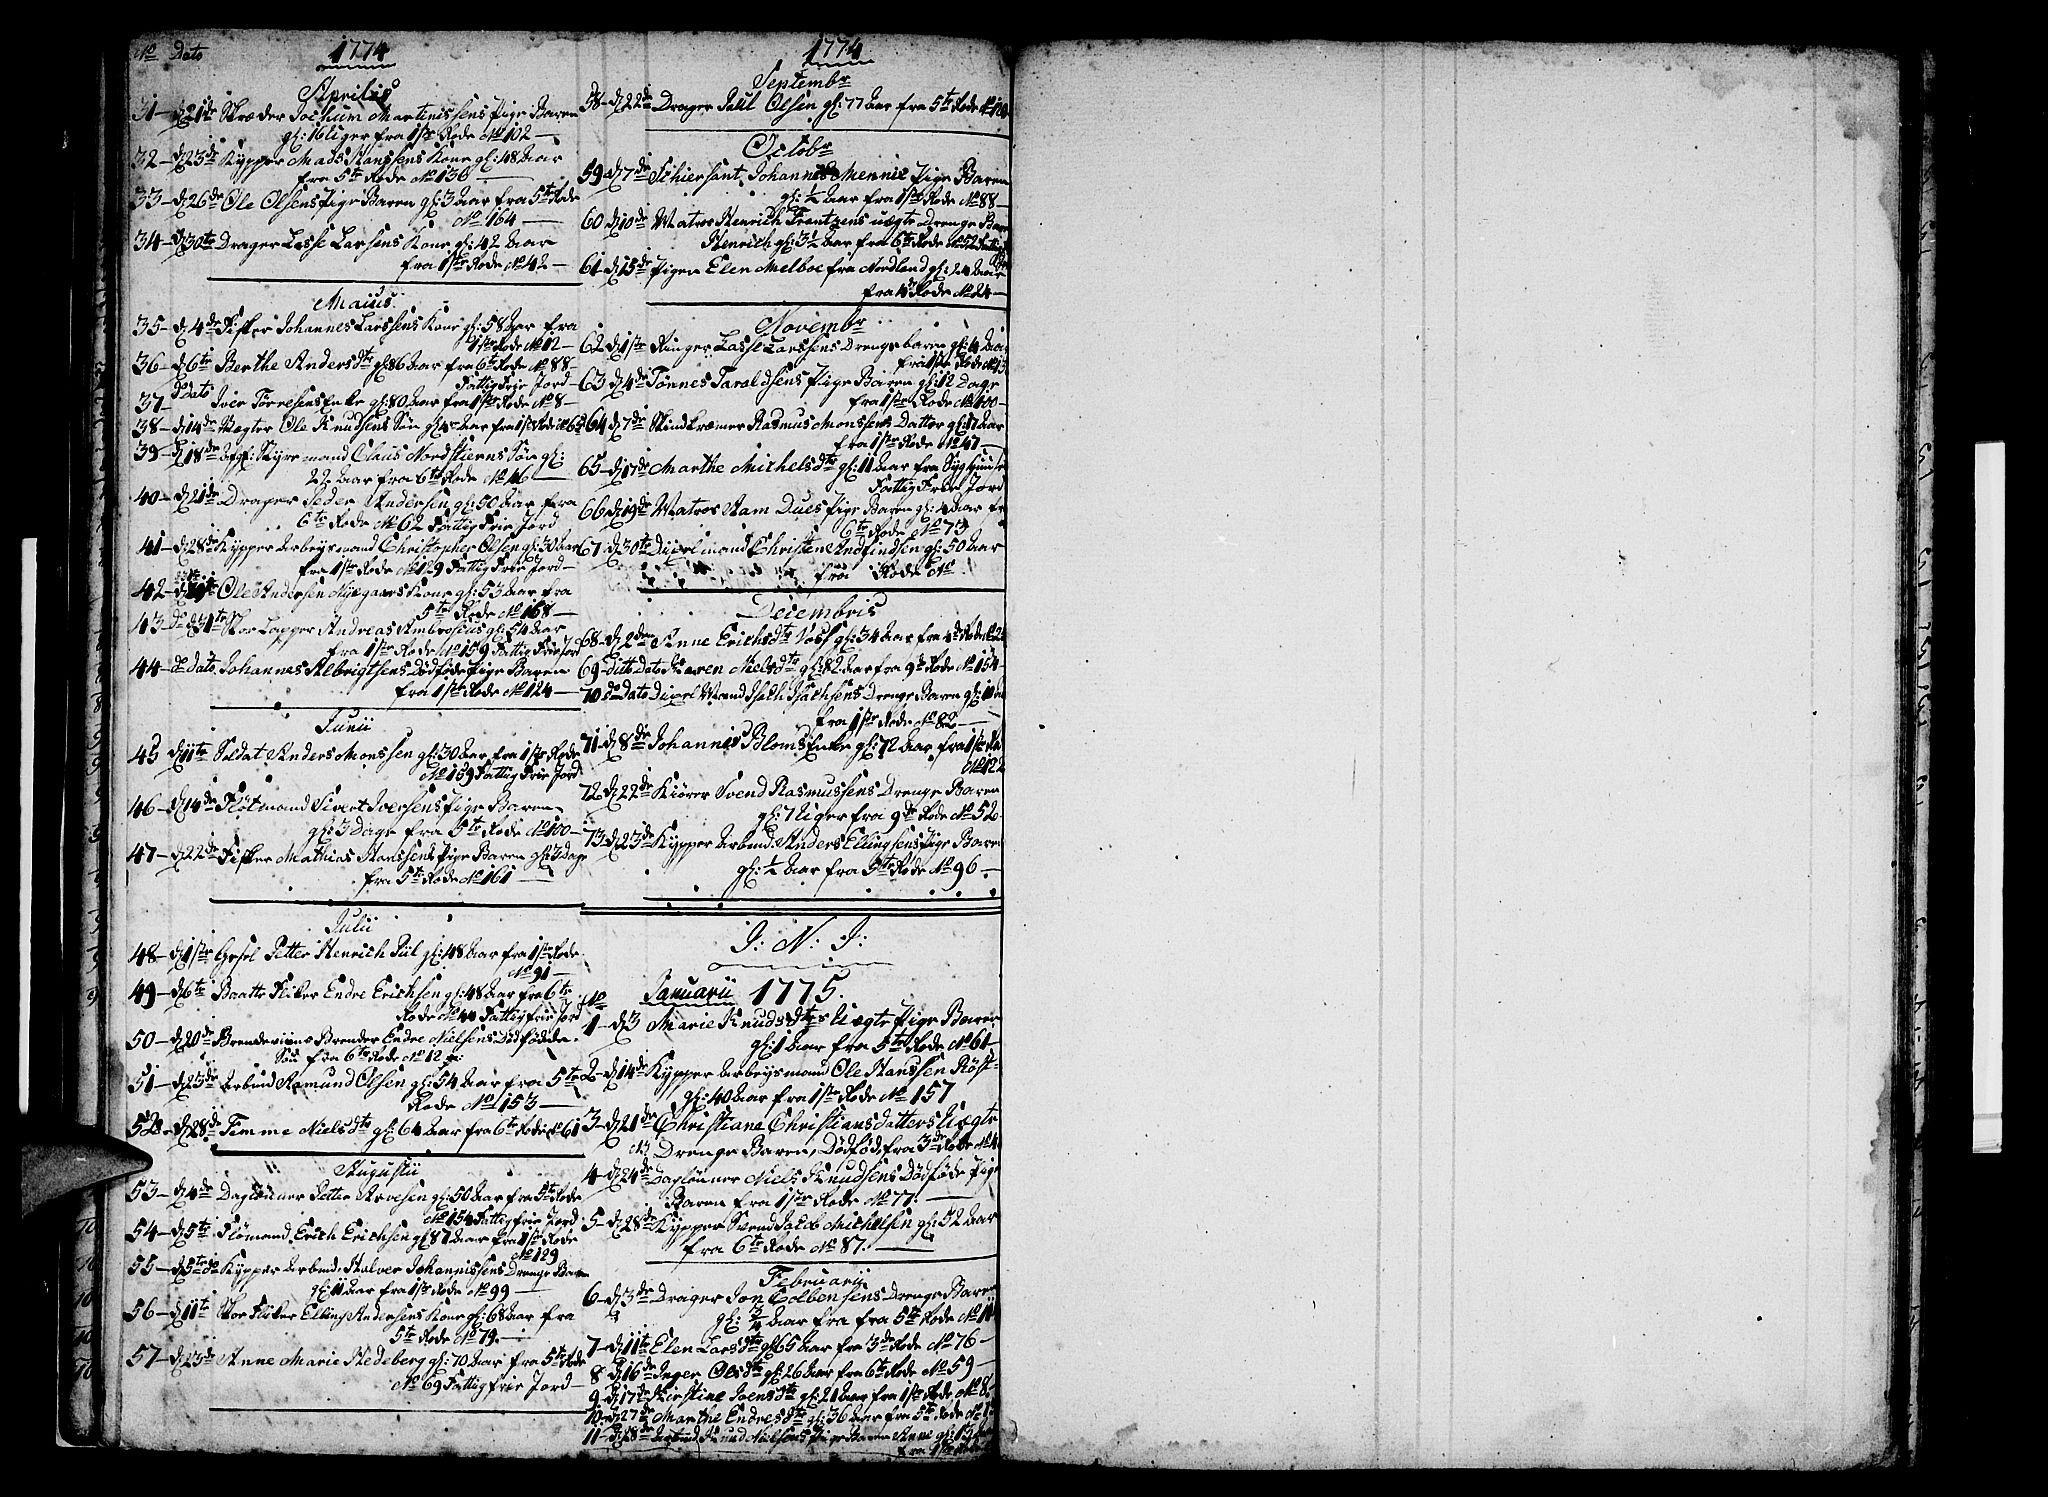 No Dato 1774
Aprilis
31 – d 21de Skræder Jochum Martinissens Pige Baren
gl: 16 Uger fra 1ste Rode No 102 —
32 – d 23de Kypper Mads Hanssens Kone gl: 48 Aar
fra 5te Rode No 136 —
33 – d 26de Ole Olsens Pige Baren gl: 3 Aar fra 5te Rode
No 164 —
34 – d 30te Drager Lasse Larsens Kone gl: 42 Aar
fra 1ste Rode No 42 —
Maiius
35 – d 4de Fisker Johannes Larssens Kone gl: 58 Aar fra
1ste Rode No 12 —
36 – d 6te Berthe Anders dtr gl: 86 Aar fra 6te Rode No 88 –
Fattig Frie Jord –
37 – do Dato Iver Torresens Enke gl: 80 Aar fra 1ste Rode No 8 –
38 – d 14de Vægter Ole Knudsens Søn gl: Aar fra 1ste Rode
39 – d 18de Claus Nordstierns Søn gl:
22 Aar fra 6te Rode No 16 —
40 – d 21de Drager Peder Andersen gl: 50 Aar fra
6te Rode No 62 Fattig Frie Jord
41 – d 28de Kypper Arbeysmand Christopher Olsen gl: 30 Aar
fra 1ste Rode No 129 Fattig Frie Jord –
42 – Ole Andersen Nyegaars Kone gl: 53 Aar fra
5te Rode No 168 —
43 – d 31te Skor Lapper Andreas Ambrosius gl: 54 Aar
fra 1ste Rode No 159 Fattig Frie Jord
44 – do Dato Johannes Albrigtsens Dødføde Pige Baren
fra 1ste Rode No 124 —
Junii
45 d 11te Soldat Anders Monssen gl: 30 Aar fra 1ste Rode
No 159 Fattig Frie Jord
46 – d 14de Fløtmand Sivert Iversens Pige Baren
gl: 3 Dage fra 5te Rode No 100 —
47 – d 22de Fisker Mathias Hanssens Pige Baren gl: 3 dage
fra 5te Rode No 161 —
Julii
48 – d 1ste Petter Henrich Piil gl: 48 Aar fra 1ste Rode
No 91 —
49 – d 6te Baatte Fliker Endre Erichsen gl: 48 Aar fra 6te
Rode No 44 Fattig frie Jord
50 – d 20de Brendeviins Brender Endre Nielsens Dødfødde
Søn fra 6te Rode No 12
51 – d 23de Arbmd Romund Olsen gl: 54 Aar fra 5te
Rode No 153 —
52 – d 28de Temme Niels dtr gl: 64 Aar fra 6te Rode No 61
Augustii
53 – d 4de Dagløner Petter Arvesen gl: 50 Aar fra 5te Rode
No 154 Fattig frie Jord
54 – d 5te Flømand Erich Erichsen gl: 87 Aar fra 1ste Rode
No 129
55 – d 5te do Kypper Arbmd. Halver Johannissens Drenge Baren
gl: 11 Aar fra 1ste Rode No 99 —
56 – d 11te Skor Fliker Elling Andersens Kone gl: 68 Aar fra
5te Rode No 79. —
57 – d 23de Anne Marie Hedeberg gl: 70 Aar fra 5te Rode
No 69 Fattig frie Jord –
1774
Septembr
58 – d 22de Drager Poul Olsen gl: 77 Aar fra 5te Rode No
Octobr
59 d 7de Schiersant Johannes Mennie Pige Baren
gl: ½ Aar fra 1ste Rode No 88 –
60 d 10de Matros Henrich Frentzens uægte Drenge Bare
Henrich gl: 3½ Aar fra 6te Rode No 52
61 – d 15de Pigen Elen Melboe fra Nordland gl: 24 Aar
fra 4de Rode No 24 —
Novembr
62 d 1ste Ringer Lasse Larssens Drenge baren gl: 4 Aar
fra 1ste Rode No 13
63 d 4de Tønnes Taraldsens Pige Baren gl: 12 Dage
fra 1ste Rode No 100 –
64 d 7de Skindkræmer Rasmus Monsens Datter gl: 17 Aar
fra 1ste Rode No 47 —
65 – d 17de Marthe Michels dtr gl: 11 Aar fra
Fattig Frie Jord
66 d 19de Matros Ham Dues Pige Baren gl: 4 Aar fra
6te Rode No 73
67 – d 30te Dixelmand Christen Andfindsen gl: 50 Aar
fra Rode No
Decembris
68 – d 2den Anne Erichs dtr Voss gl: 34 Aar fra 4de Rode No 2
69 – ditto Dato Karen Niels dtr gl: 82 Aar fra 9de Rode No 154 –
70 do Dato Dixel Mand Isach Isachsens Drenge Baren gl: 10
fra 1ste Rode No 82 —
71 – d 8de Johannis Bloms Enke gl: 72 Aar fra 1ste Ro
No 122
72 – d 22de Kiører Svend Rasmussens Drenge Baren
gl: 7 Uger fra 9de Rode No 52 –
73 – d 23de Kypper Arbmd. Anders Ellingsens Pige Baren
gl: ½ Aar fra 5te Rode No 96 —
J: N: J:
Januarii 1775.
No
1 – d 3 Marie Knuds dtrs Uægte Pige Baren
gl: 1 Aar fra 5te Rode No 61 –
2 – d 14de Kypper Arbeysmand Ole Hanssen Røst –
gl: 40 Aar fra 1ste Rode No 157
3 – d 21de Christiane Christiansdatters Uægte
Drenge Baren, Dødfød, fra 3de Rode No 4
4 – d 24de Dagløner Niels Knudsens Dødføde Pige
Baren fra 1ste Rode No 77. —
5 – d 28de Kypper Svend Jacob Michelsen gl: 52 Aar
fra 6te Rode No 87. —
Februarii
6 – d 3de Drager Jon Colbensens Drenge Baren
gl: ¾ Aar fra fra 5te Rode No 11
7 – d 11te Elen Lars dtr gl: 65 Aar fra 3de Rode No 76 –
8 d 16de Inger Ols dtr gl: 26 Aar fra 6te Rode No 59 –
9 – d 17de Kirstine Joens dtr gl: 21 Aar fra 1ste Rode No 8
10 – d 27de Marthe Endres dtr gl: 36 Aar fra 5te Rode No
11 – d 28de Arbmd Knud Nielsens Pige Baren Anne gl:
fra 1ste Rode